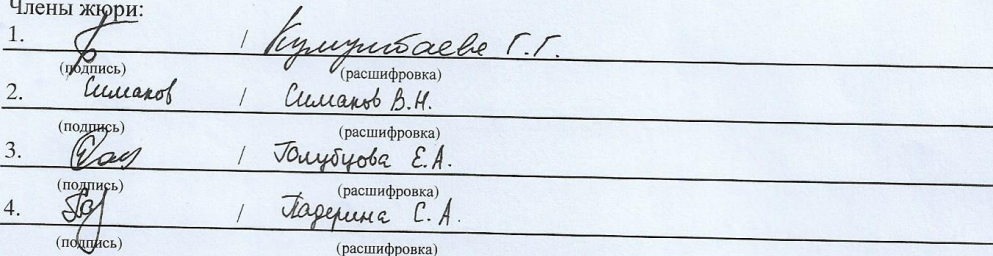 Члены жюри:
1. / Кумунтбаева Г.Г.
(подпись) (расшифровка)
2. Симаков / Симаков В.Н.
(подпись) (расшифровка)
3. / Голубцова Е.А.
(подпись) (расшифровка)
4. / Падерина С.А.
(подпись) (расшифровка)